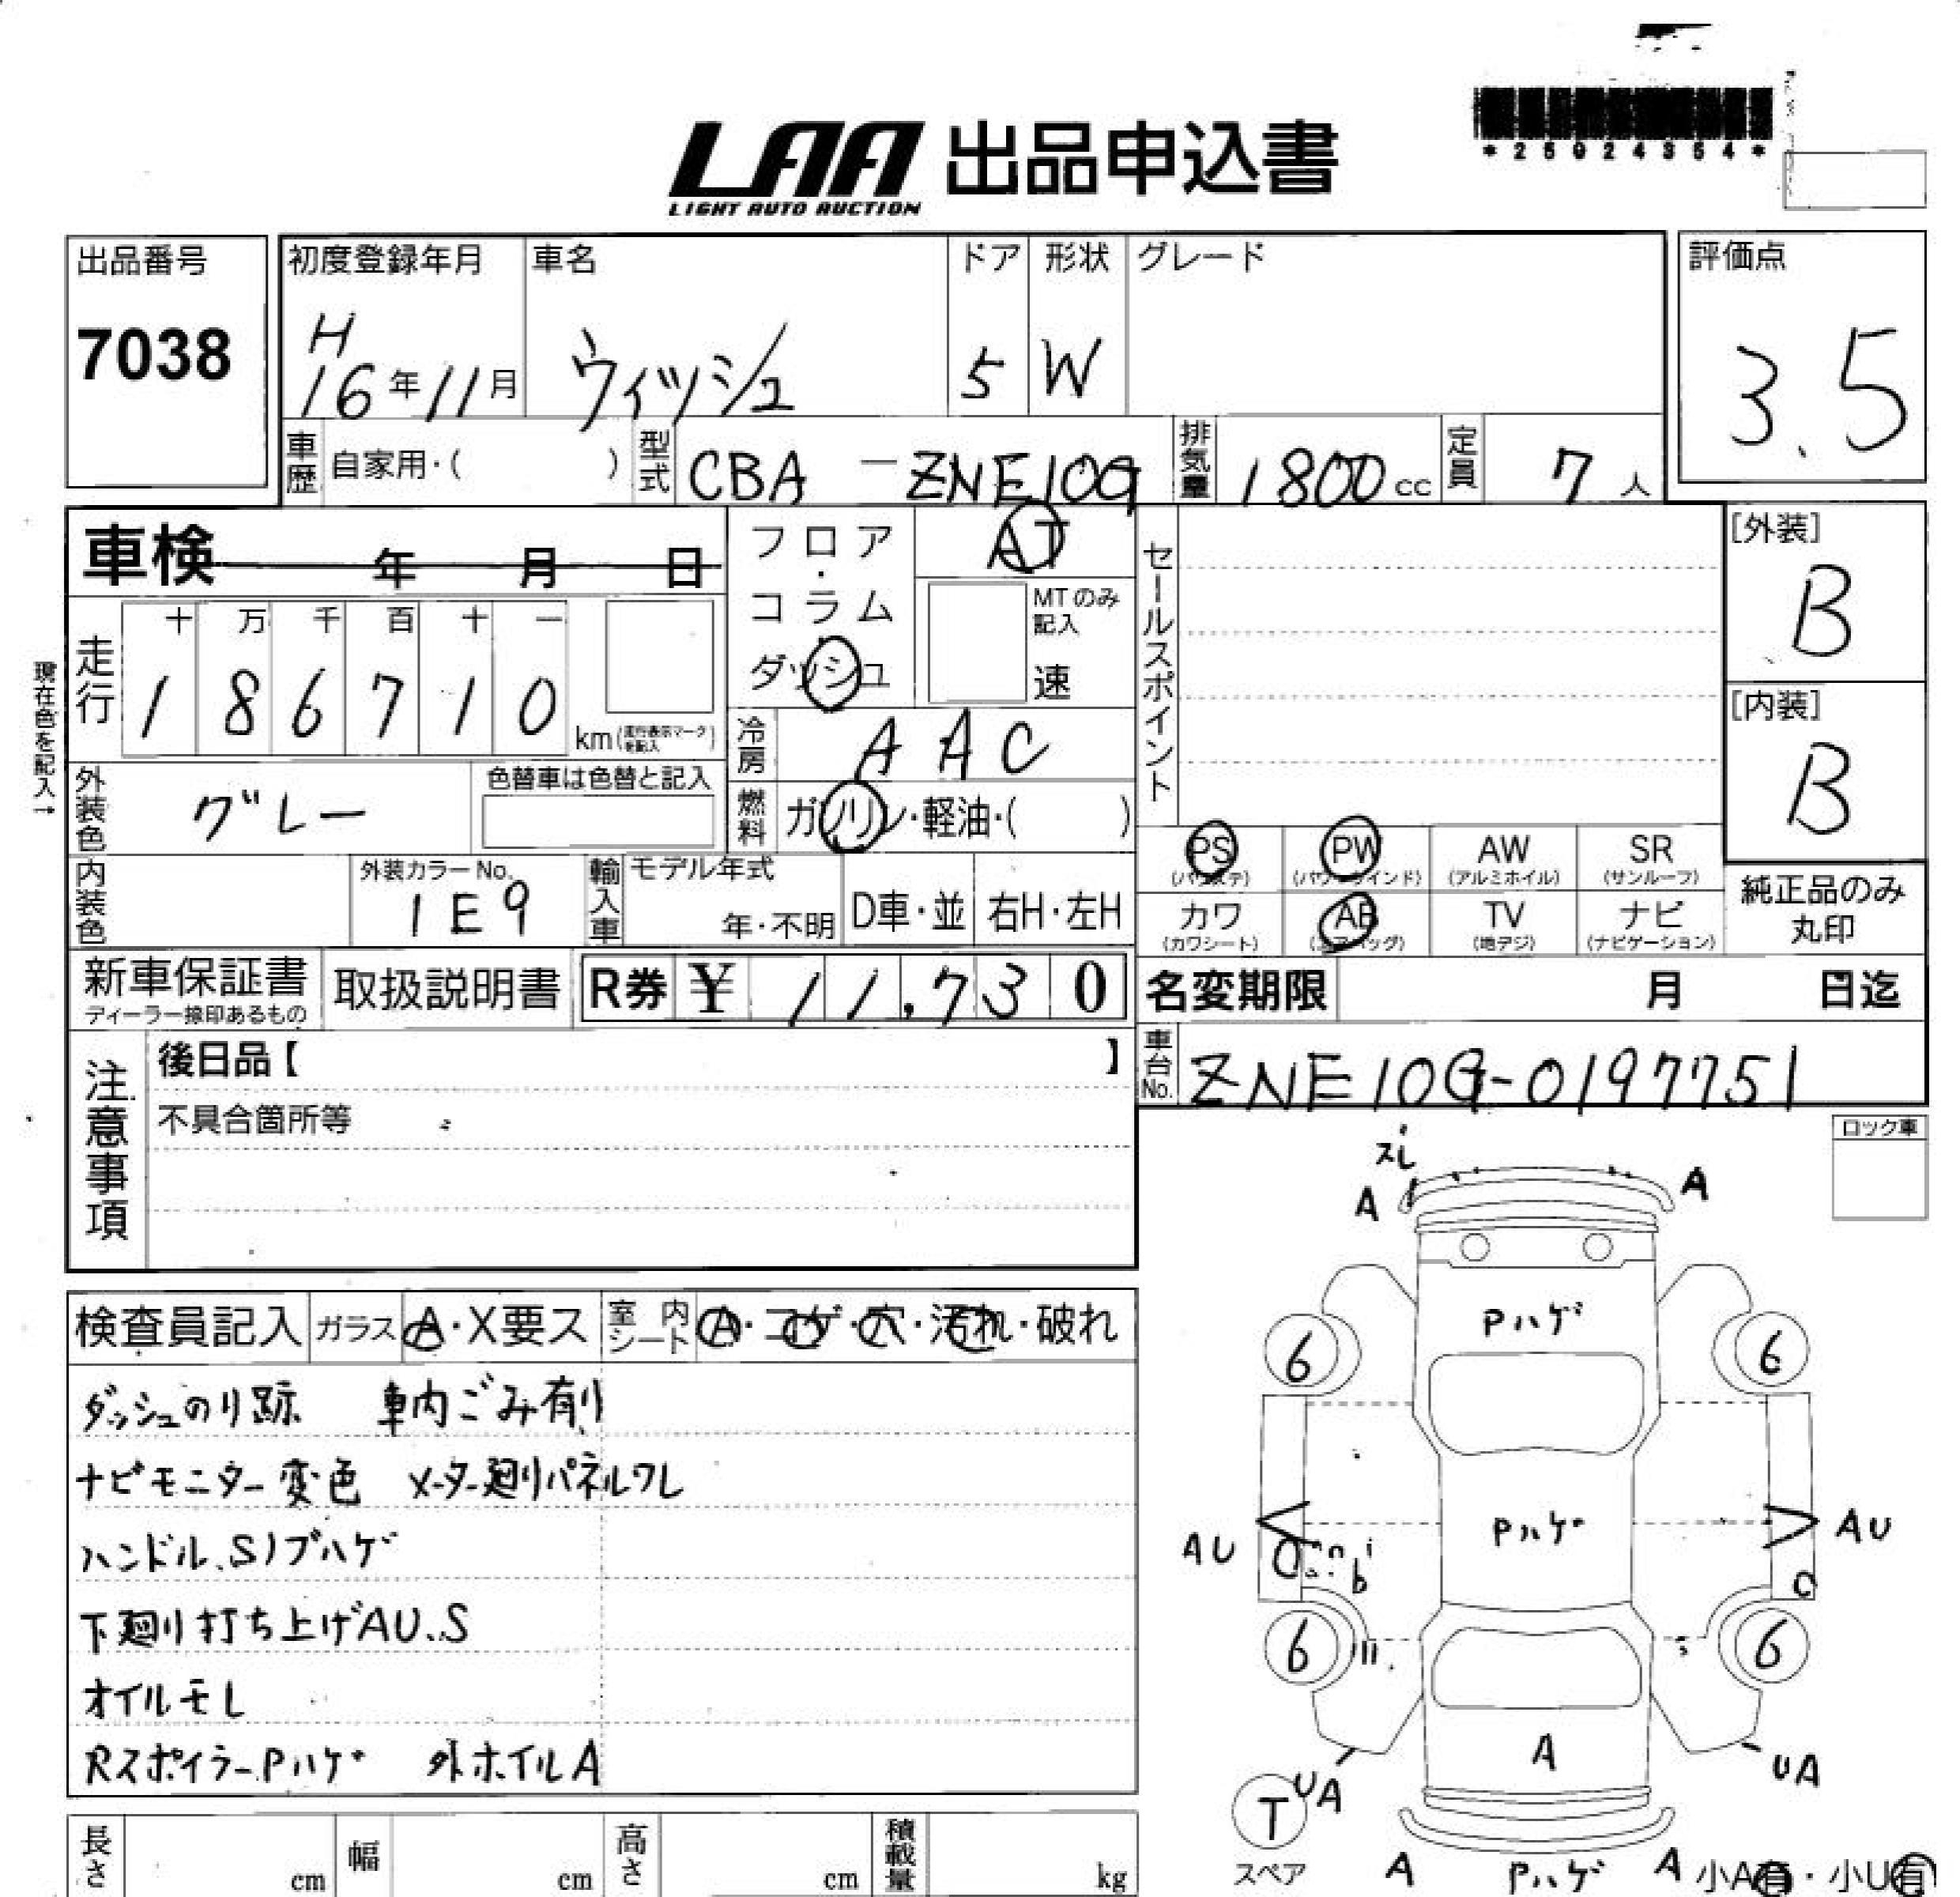 *25024354*
LAA 出品申込書
LIGHT AUTO AUCTION
出品番号 初度登録年月 車名 ドア 形状 グレード 評価点
7038 H16年11月 ウィッシュ 5 W 3.5
車歴 自家用・( ) 型式 CBA - ZNE10G 排気量 1800cc 定員 7人
車検 年 月 日
フロア・コラム・ダッシュ AT
MTのみ記入 速
セールスポイント
[外装] B
[内装] B
現在色を記入→
走行 十 万 千 百 十 一
1 8 6 7 1 0 km(走行表示マークを記入)
冷房 AAC
外装色 グレー 色替車は色替と記入
燃料 ガソリン・軽油・( )
PS (パワステ) PW (パワーウインド) AW (アルミホイル) SR (サンルーフ)
カワ (カワシート) AB (エアバッグ) TV (地デジ) ナビ (ナビゲーション)
純正品のみ丸印
内装色 外装カラーNo. 1E9 輸入車 モデル年式 年・不明 D車・並 右H・左H
新車保証書 ディーラー捺印あるもの 取扱説明書 R券 ¥ 11,730
名変期限 月 日迄
車台No. ZNE10G-0197751
注意事項 後日品【 】
不具合箇所等
ロック車
検査員記入 ガラス A・X要ス 室内シート A・コゲ・穴・汚れ・破れ
ダッシュのり跡 車内ごみ有り
ナビモニター変色 メーター廻りパネルワレ
ハンドル、Sノブハゲ
下廻り打ち上げAU、S
オイルモレ
Rスポイラー Pハゲ 外ホイルA
スレ
A A
Pハゲ
6 6
Pハゲ
AU AU
6 6
A
UA UA
T
スペア
A Pハゲ A 小A有・小U有
長さ cm 幅 cm 高さ cm 積載量 kg